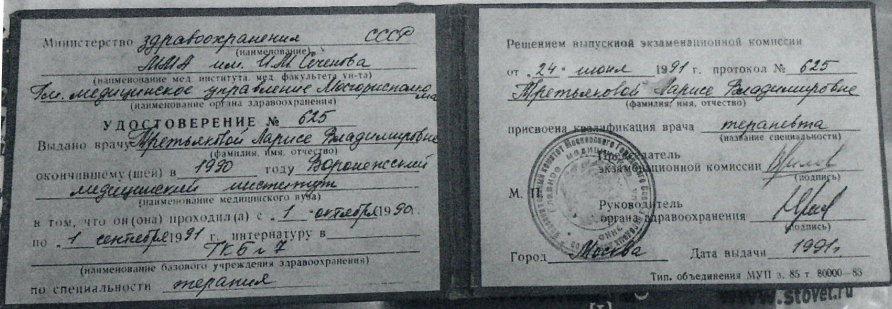 Министерство здравоохранения СССР
(наименование)
ММА им. И.М Сеченова
(наименование мед. института, мед. факультета ун-та)
Гл. медицинское управление Мосгорисполкома
(наименование органа здравоохранения)
УДОСТОВЕРЕНИЕ № 625
Выдано врачу Третьяковой Ларисе Владимировне
(фамилия, имя, отчество)
окончившему(шей) в 1990 году Воронежский
медицинский институт
(наименование медицинского вуза)
в том, что он(она) проходил(а) с 1 октября 1990г.
по 1 сентября 1991 г. интернатуру в
ГКБ № 7
(наименование базового учреждения здравоохранения)
по специальности терапия
Решением выпускной экзаменационной комиссии
от 24 июня 1991 г. протокол № 625
Третьяковой Ларисе Владимировне
(фамилия, имя, отчество)
присвоена квалификация врача терапевта
(название специальности)
Председатель
экзаменационной комиссии
(подпись)
М. П.
Руководитель
органа здравоохранения
(подпись)
Город Москва Дата выдачи 1991г
Тип. объединения МУП з. 85 т 80000—83
www.stovet.ru